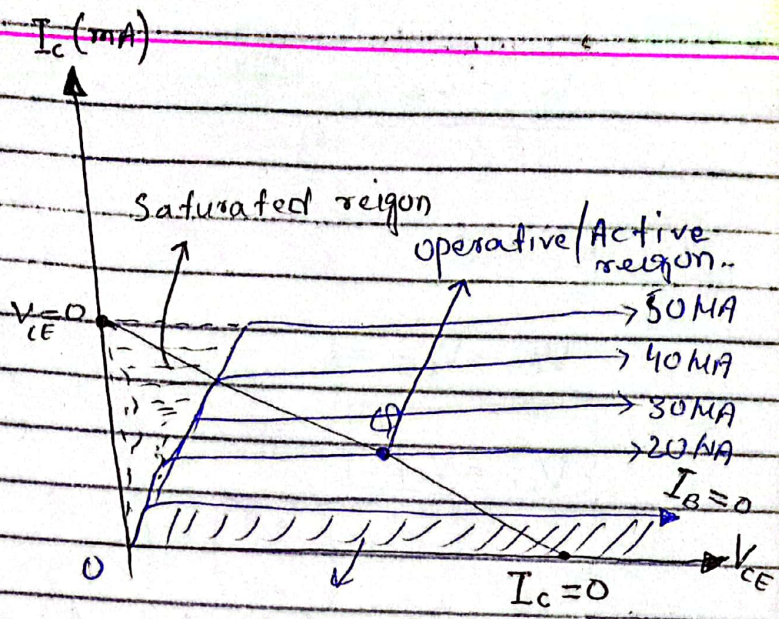 Ic (mA)
Saturated reigon
operative/Active
reigon..
VCE=0
50 MA
40 MA
30 MA
Q
20 MA
IB=0
0
IC=0
VCE